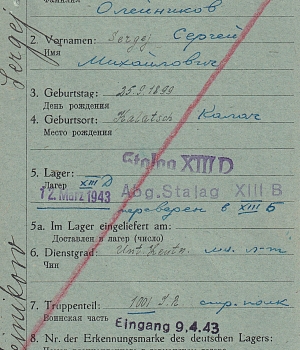 Фамилия
Олейников
2. Vornamen: Sergej Сергей
Имя
Михайлович
3. Geburtstag: 25.9.1899
День рождения
4. Geburtsort: Kalatsch Калач
Место рождения
Stalag XIII D
5. Lager:
Лагерь XIII D
12. März 1943 Abg. Stalag XIII B
переведен в XIII Б
5a. Im Lager eingeliefert am:
Доставлен в лагерь (число)
6. Dienstgrad: Unt. Leutn. мл. л-т
Чин
7. Truppenteil: 1001 I.R. стр. полк
Воинская часть
Eingang 9.4.43
8. Nr. der Erkennungsmarke des deutschen Lagers:
Sergej